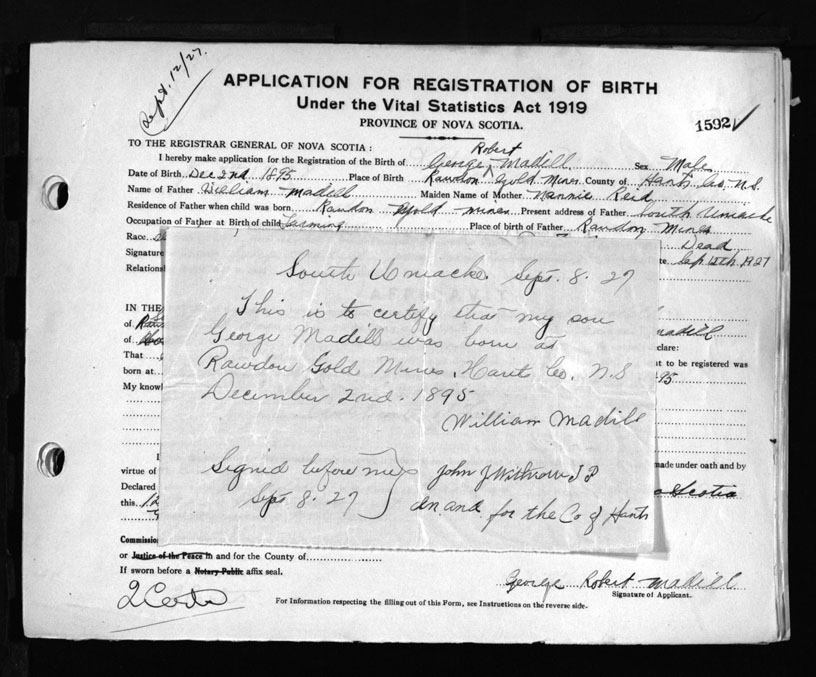 Sept. 12/27.
APPLICATION FOR REGISTRATION OF BIRTH
Under the Vital Statistics Act 1919
PROVINCE OF NOVA SCOTIA.
1592
TO THE REGISTRAR GENERAL OF NOVA SCOTIA :
Robert
I hereby make application for the Registration of the Birth of George Madill Sex Male
Date of Birth Dec 2nd 1895 Place of Birth Rawdon Gold Mines County of Hants Co, N.S.
Name of Father William Madill Maiden Name of Mother Nannie Reid
Residence of Father when child was born, Rawdon Gold mines Present address of Father South Uniacke
Occupation of Father at Birth of child Farming Place of birth of Father Rawdon Mines
Race Dead
Signature Sep 12th 1927
Relations
South Uniacke Sept. 8. 27
This is to certify that my son
George Madill was born at
Rawdon Gold Mines, Hants Co. N.S
December 2nd. 1895
William Madill
Signed before me John J Withrow J P
Sept 8. 27 In and for the Co of Hants
IN THE
of
of Madill
That clare:
born at t to be registered was
My know 95
made under oath and by
virtue of
Declared Scotia
this 12
Commissi
or Justice of the Peace in and for the County of
If sworn before a Notary Public affix seal.
2 Certs
George Robert Madill
Signature of Applicant.
For Information respecting the filling out of this Form, see Instructions on the reverse side.